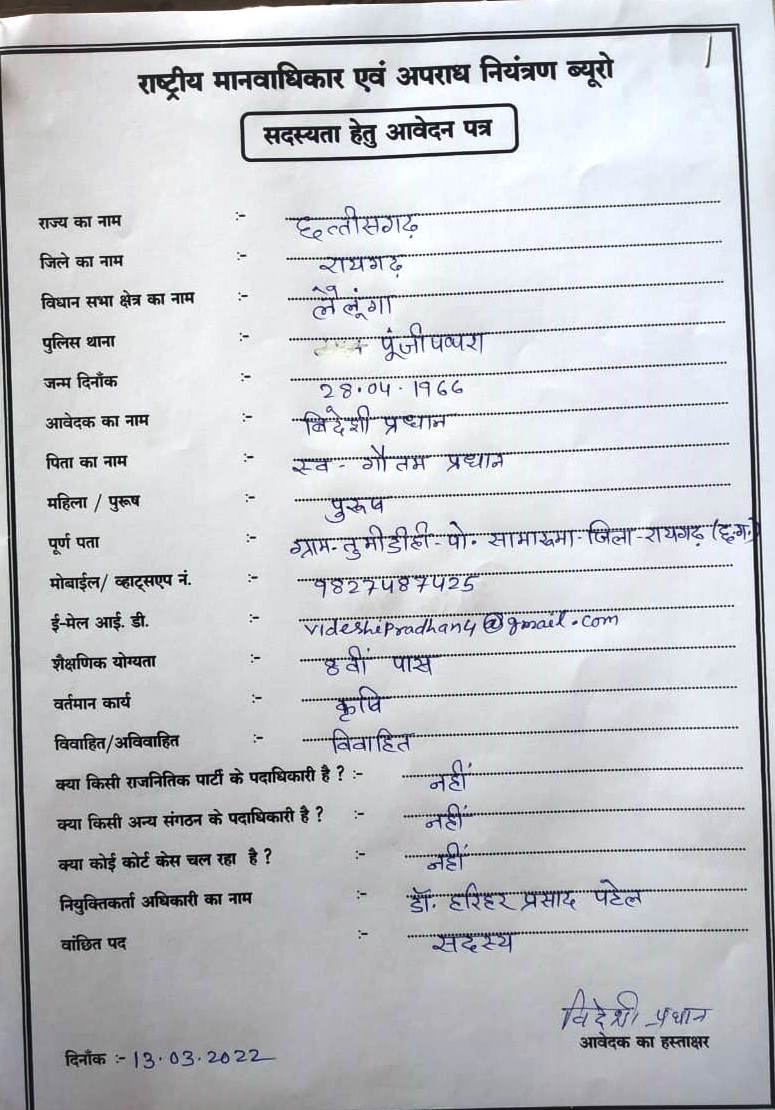 राष्ट्रीय मानवाधिकार एवं अपराध नियंत्रण ब्यूरो
सदस्यता हेतु आवेदन पत्र
राज्य का नाम :- छत्तीसगढ़
जिले का नाम :- रायगढ़
विधान सभा क्षेत्र का नाम :- लैलूंगा
पुलिस थाना :- पूंजीपथरा
जन्म दिनाँक :- 28.04.1966
आवेदक का नाम :- विदेशी प्रधान
पिता का नाम :- स्व- गौतम प्रधान
महिला / पुरूष :- पुरूष
पूर्ण पता :- ग्राम-तुमीडीही-पो. सामारूमा-जिला-रायगढ़ (छ.ग.)
मोबाईल/ व्हाट्सएप नं. :- 9827487425
ई-मेल आई. डी. :- videshepradhan4@gmail.com
शैक्षणिक योग्यता :- 8वीं पास
वर्तमान कार्य :- कृषि
विवाहित/अविवाहित :- विवाहित
क्या किसी राजनितिक पार्टी के पदाधिकारी है ? :- नहीं
क्या किसी अन्य संगठन के पदाधिकारी है ? :- नहीं
क्या कोई कोर्ट केस चल रहा है ? :- नहीं
नियुक्तिकर्ता अधिकारी का नाम :- डॉ. हरिहर प्रसाद पटेल
वांछित पद :- सदस्य
विदेशी प्रधान
आवेदक का हस्ताक्षर
दिनाँक :- 13.03.2022